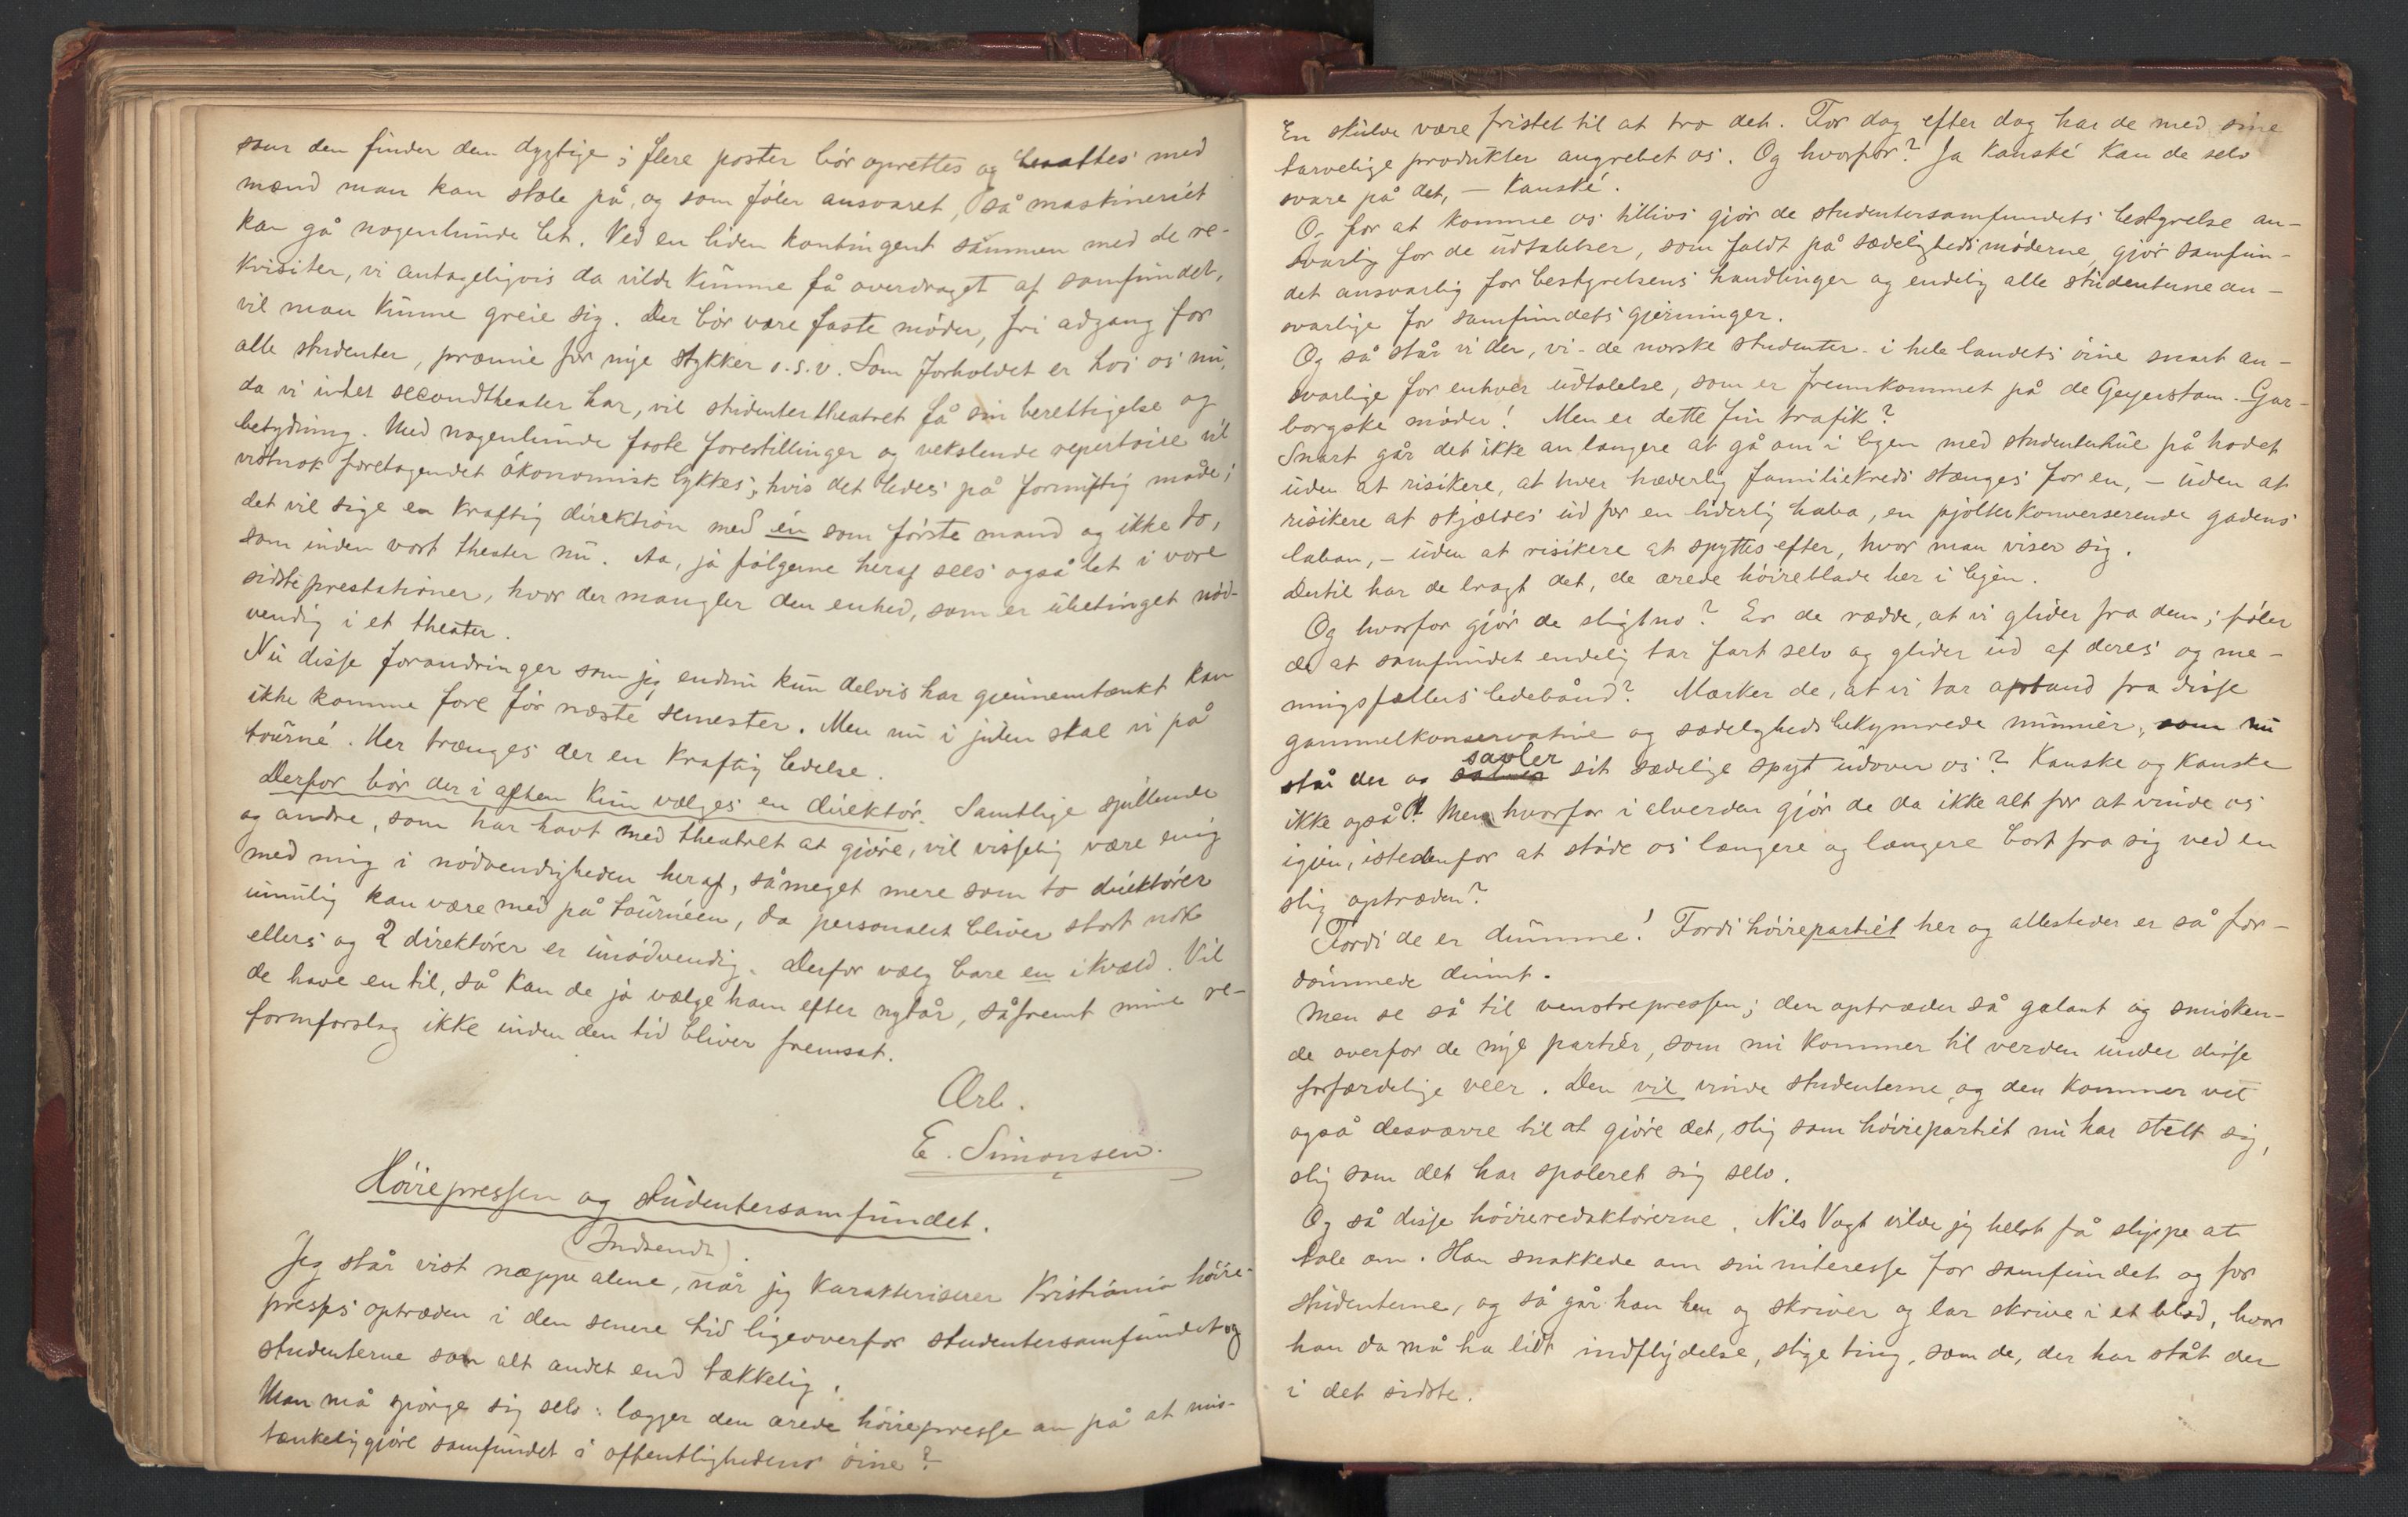 som den finder den dygtige; flere poster bör oprettes og besættes med
mænd man kan stole på, og som föler ansvaret, så maskineriet
kan gå nogenlunde let. Ved en liden kontingent sammen med de re-
kvisiter, vi antageligvis da vilde kunne få overdraget af samfundet,
vil man kunne greie sig. Der bör være faste möder, fri adgang for
alle studenter, præmie for nye stykker o.s.v. Som forholdet er hos os nu,
da vi intet secondtheater har, vil studentertheatret få sin berettigelse og
betydning. Med nogenlunde faste forestillinger og vekslende repertoire vil
vistnok foretagendet ökonomisk lykkes, hvis det ledes på fornuftig måde;
det vil sige en kraftig direktion med én som förste mand og ikke to,
som inden vort theater nu. Aa, ja fölgerne heraf sees også let i vore
sidste prestationer, hvor der mangler den enhed, som er ubetinget nöd-
vendig i et theater.
Nu disse forandringer som jeg endnu kun delvis har gjennemtænkt kan
ikke komme fore för næste semester. Men nu i julen skal vi på
tourné. Her trænges der en kraftig ledelse.
Derfor bör der i aften kun vælges en direktör. Samtlige spillende
og andre, som har havt med theatret at gjöre, vil visselig være enig
med mig i nödvendigheden heraf, såmeget mere som to direktörer
umulig kan være med på tournéen, da personalet bliver stort nok
ellers og 2 direktörer er unödvendig. Derfor vælg bare en ikvæld. Vil
de have en til, så kan de jo vælge ham efter nytår, såfremt mine re-
formforslag ikke inden den tid bliver fremsat.
Ærb.
E. Simonsen.
Höirepressen og studentersamfundet.
(Indsendt).
Jeg står vist neppe alene, når jeg karakteriserer Kristiania höire-
presses optræden i den senere tid ligeoverfor studentersamfundet og
studenterne som alt andet end tækkelig.
Man må spörge sig selv: lægger den ærede höirepresse an på at mis-
tænkeliggjöre samfundet i offentlighedens öine?
En skulde være fristet til at tro det. For dag efter dag har de med sine
tarvelige produkter angrebet os. Og hvorfor? Ja kanské kan de selv
svare på det, — kanské.
Og for at komme os tillivs gjör de studentersamfundets bestyrelse an-
svarlig for de udtalelser, som faldt på sædelighedsmöderne, gjör samfun-
det ansvarlig for bestyrelsens handlinger og endelig alle studenterne an-
svarlige for samfundets gjerninger.
Og så står vi der, vi - de norske studenter - i hele landets öine snart an-
svarlige for enhver udtalelse, som er fremkommet på de Geyerstam-Gar-
borgske möder! Men er dette fin trafik?
Snart går det ikke an længere at gå om i byen med studenterhue på hodet
uden at risikere, at hver hæderlig familiekreds stænges for en, — uden at
risikere at skjældes ud for en liderlig haba, en pjolterkonverserende gadens
laban, — uden at risikere at spyttes efter, hvor man viser sig.
Dertil har de bragt det, de ærede höireblade her i byen.
Og hvorfor gjör de sligt no? Er de rædde, at vi glider fra dem; föler
de at samfundet endelig tar fart selv og glider ud af deres og me-
ningsfællers ledebånd? Mærker de, at vi tar afstand fra disse
gammelkonservative og sædelighedsbekymrede mumier, som nu
står der og savler sit sædelige spyt udover os? Kanske og kanske
ikke også! Men hvorfor i alverden gjör de da ikke alt for at vinde os
igjen, istedenfor at stöde os længere og længere bort fra sig ved en
slig optræden?
Fordi de er dumme! Fordi höirepartiet her og allesteder er så for-
dömmede dumt.
Men se så til venstrepressen; den optræder så galant og smisken-
de overfor de nye partier, som nu kommer til verden under disse
forfærdelige veer. Den vil vinde studenterne, og den kommer vel
også desværre til at gjöre det, slig som höirepartiet nu har stelt sig,
slig som det har spoleret sig selv.
Og så disse höireredaktörerne. Nils Vogt vilde jeg helst få slippe at
tale om. Han snakkede om sin interesse for samfundet og for
studenterne, og så går han hen og skriver og lar skrive i et blad, hvor
han da må ha lidt indflydelse, slige ting, som de, der har ståt der
i det sidste.